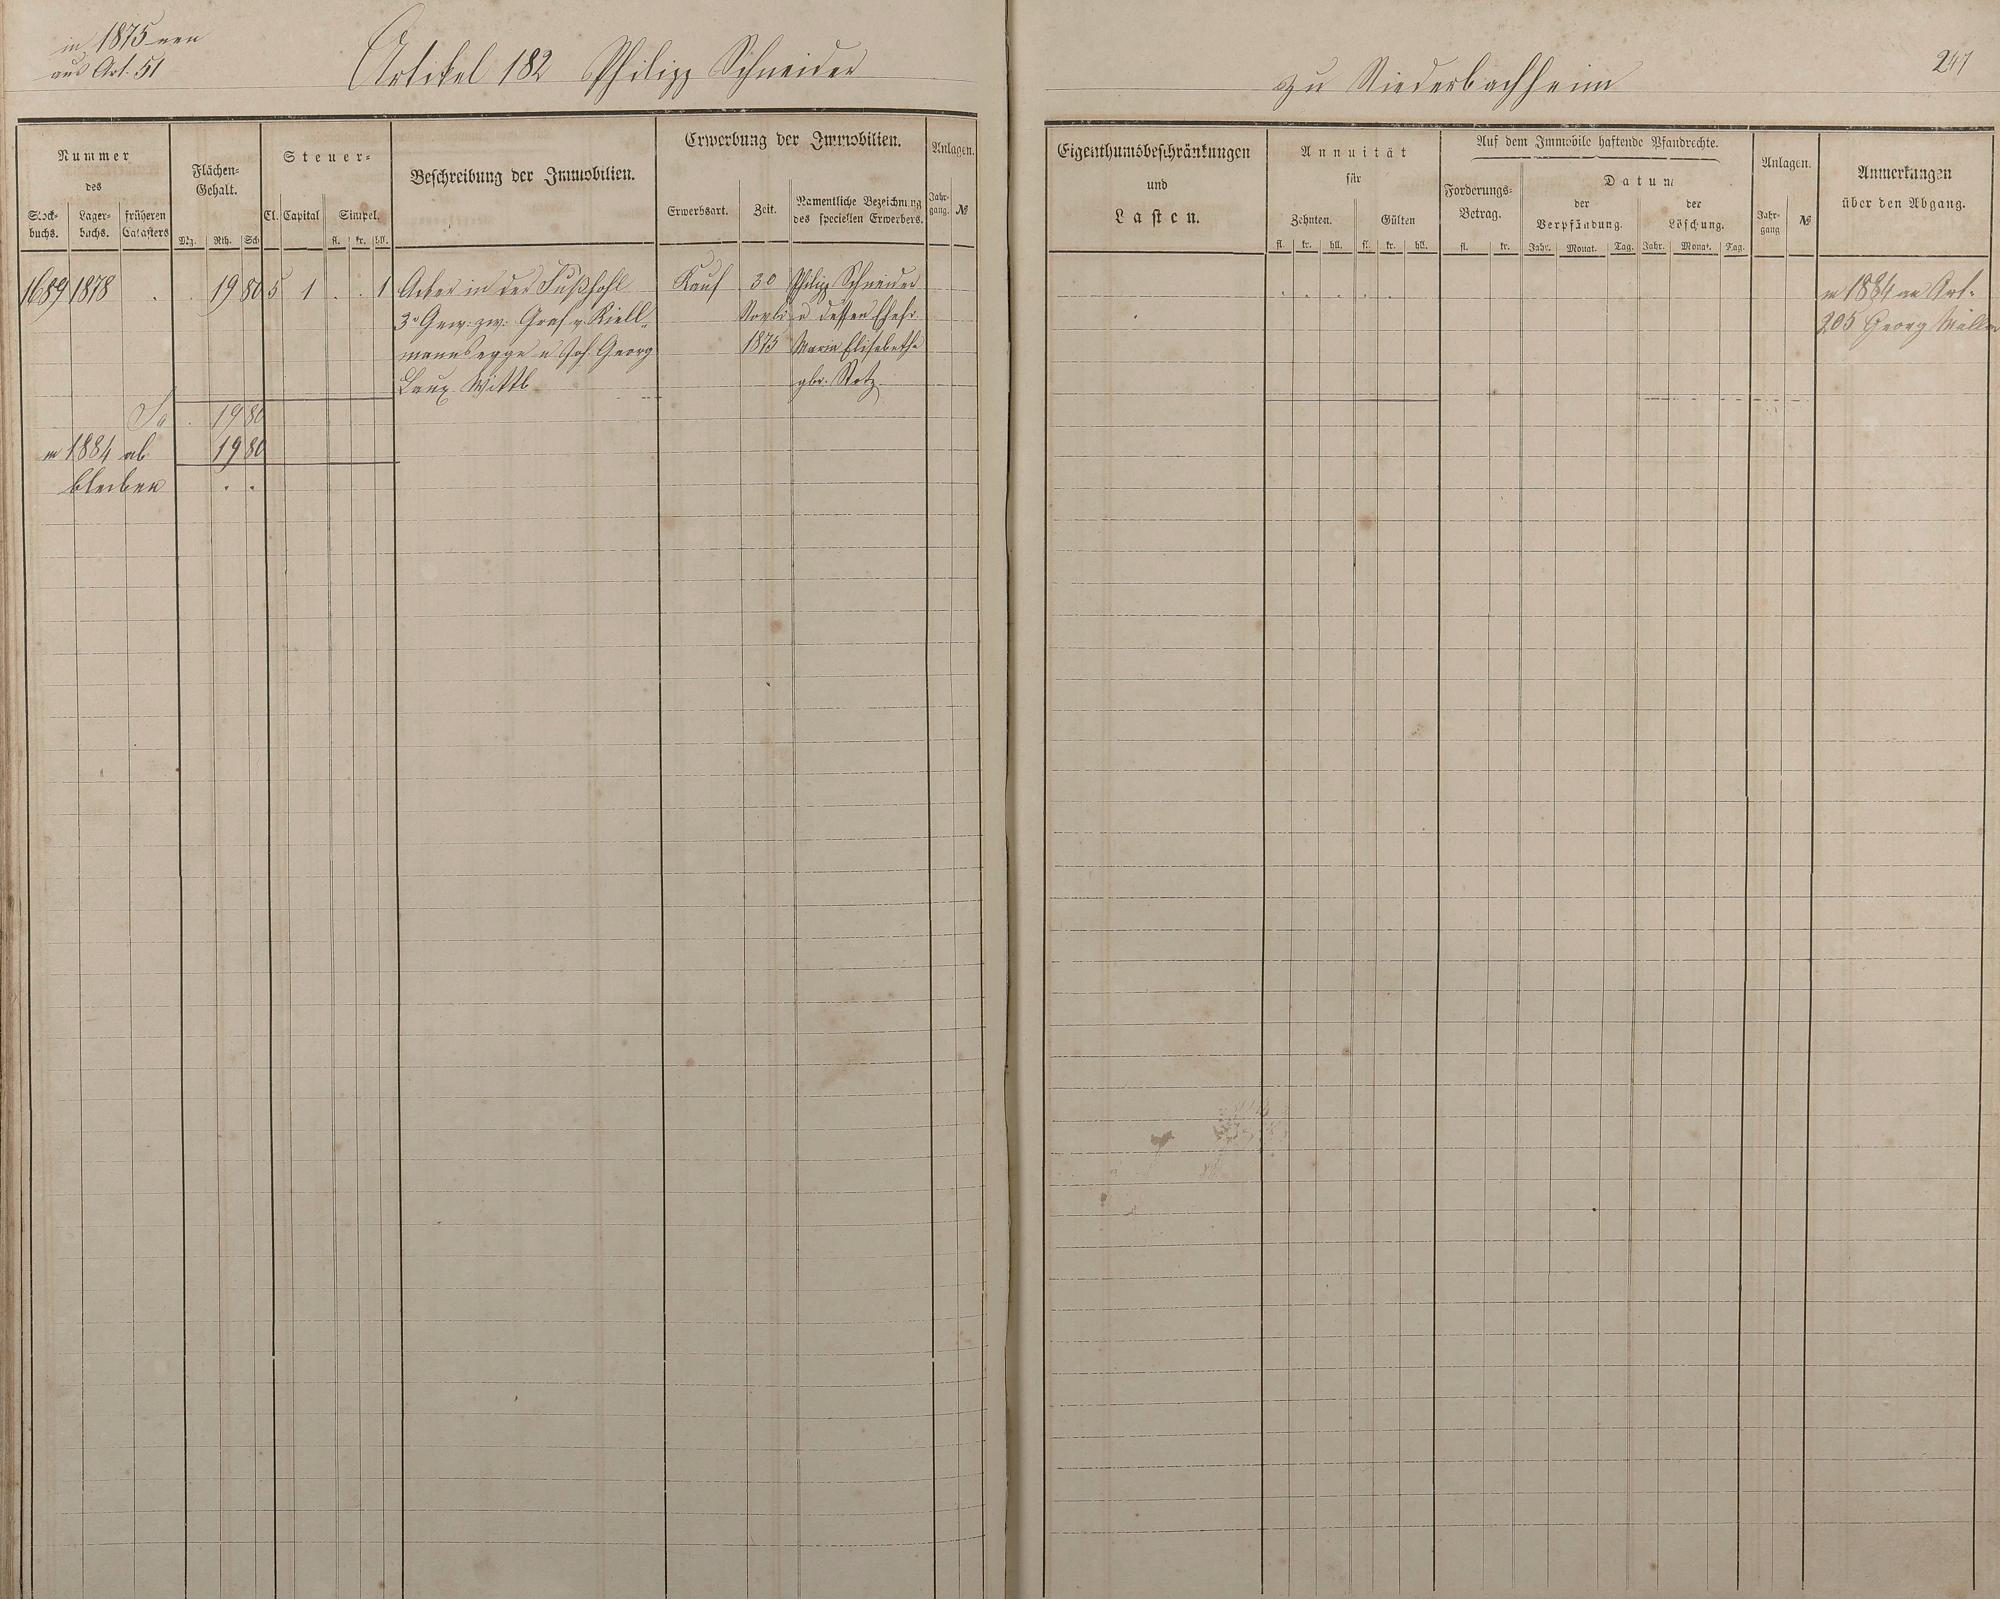 in 1875 neu
aus Art. 51
Artikel 182 Philipp Schneider
zu Niederbachheim
247
Nummer
des
Stock-
buchs.
Lager-
buchs.
früheren
Catasters
Flächen-
Gehalt.
Mg. Rth. Sch
Steuer-
Cl. Capital Simpel.
fl. kr. hll.
Beschreibung der Immobilien.
Erwerbung der Immobilien.
Erwerbsart. Zeit.
Namentliche Bezeichnung
des speciellen Erwerbers.
Anlagen.
Jahr-
gang. №
Eigenthumsbeschränkungen
und
Lasten.
Annuität
für
Zehnten. Gülten
fl. kr. hll. fl. kr. hll.
Auf dem Immobile haftende Pfandrechte.
Forderungs-
Betrag.
fl. kr.
Datum
der
Verpfändung.
der
Löschung.
Jahr. Monat. Tag. Jahr. Monat. Tag.
Anlagen.
Jahr-
gang №
Anmerkungen
über den Abgang.
1689 1878 . . 19 80 5 1 . . 1 Acker in der Fußhohl Kauf 30 Philipp Schneider
3r Gew. zw. Graf v. Kiell- Novbr u dessen Ehefr.
mannsegge u Joh. Georg 1875 Maria Elisabetha
Laux Wittb. gbr. Stotz
Sa . 19 80
in 1884 ab 19 80
bleiben . .
in 1884 an Art.
205 Georg Müller